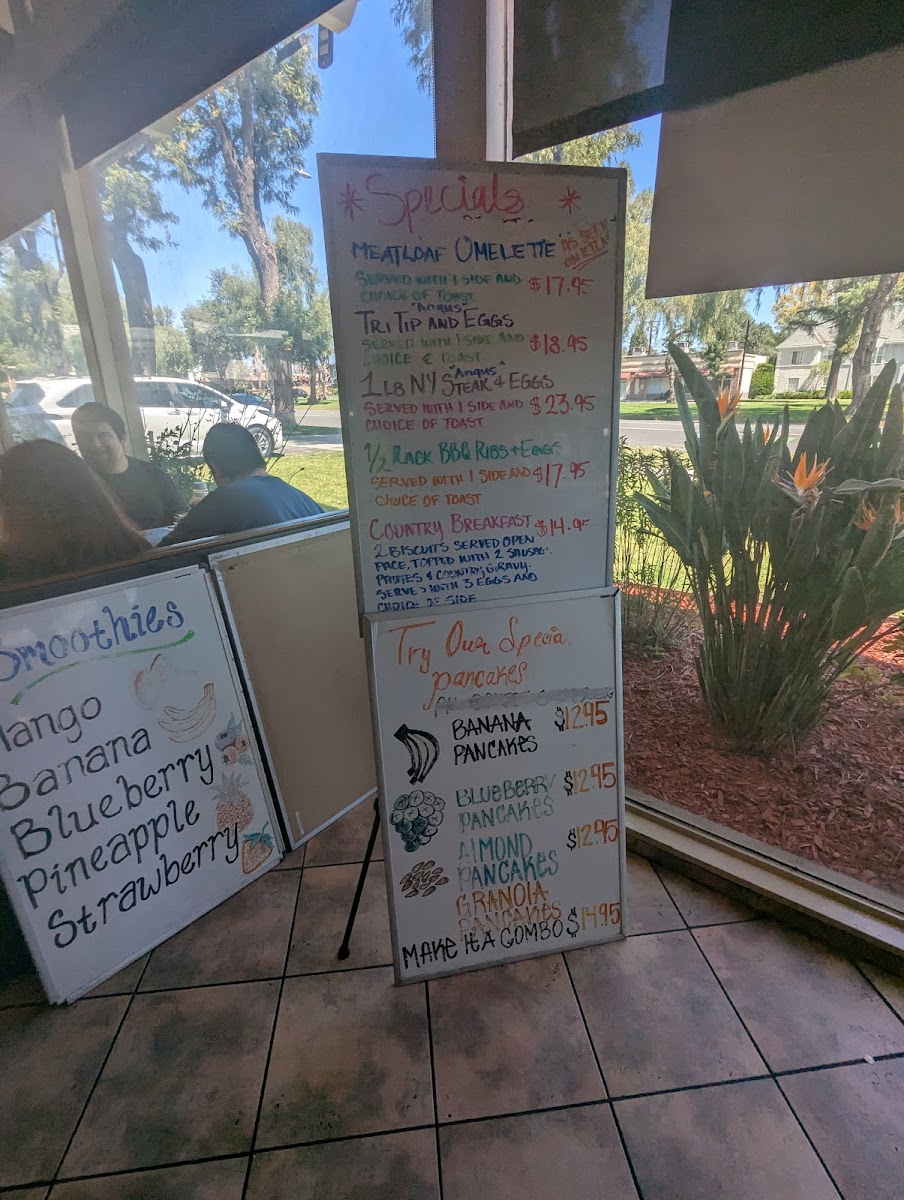 Specials
MEATLOAF OMELETTE AS SEEN ON KTLA
SERVED WITH 1 SIDE AND $17.95
CHOICE OF TOAST
"Angus"
TRI TIP AND EGGS
SERVED WITH 1 SIDE AND $18.95
CHOICE & TOAST
"Angus"
1 LB NY STEAK & EGGS
SERVED WITH 1 SIDE AND $23.95
CHOICE OF TOAST
1/2 RACK BBQ RIBS + EGGS
SERVED WITH 1 SIDE AND $17.95
CHOICE OF TOAST
COUNTRY BREAKFAST $14.95
2 BISCUITS SERVED OPEN
FACE, TOPPED WITH 2 SAUSAG
PATTIES & COUNTRY GRAVY.
SERVED WITH 3 EGGS AND
CHOICE OF SIDE
Try Our Specia
pancakes
BANANA $12.95
PANCAKES
BLUEBERRY $12.95
PANCAKES
ALMOND $12.95
PANCAKES
GRANOLA
PANCAKES
MAKE IT A COMBO $14.95
Smoothies
Mango
Banana
Blueberry
Pineapple
Strawberry